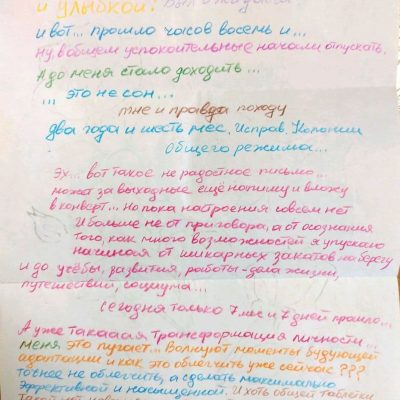 и улыбкой!
и вот... прошло часов восемь и...
ну, в общем успокоительные начали отпускать.
А до меня стало доходить...
... это не сон...
мне и правда походу
два года и шесть мес. Исправ. Колонии
общего режима...
Эх... вот такое не радостное письмо...
может за выходные ещё напишу и вложу
в конверт... Но пока настроения совсем нет
И больше не от приговора, а от осознания
того, как много возможностей я упускаю
начиная от шикарных закатов на берегу
и до учёбы, развития, работы-дела жизни,
путешествий, социума...
Сегодня только 7 мес и 7 дней прошло...
А уже такаааая трансформация личности...
меня это пугает... Волнуют моменты будующей
адаптации и как это облегчить уже сейчас???
точнее не облегчить, а сделать максимально
эффективной и насыщенной. И хоть общей таблетки